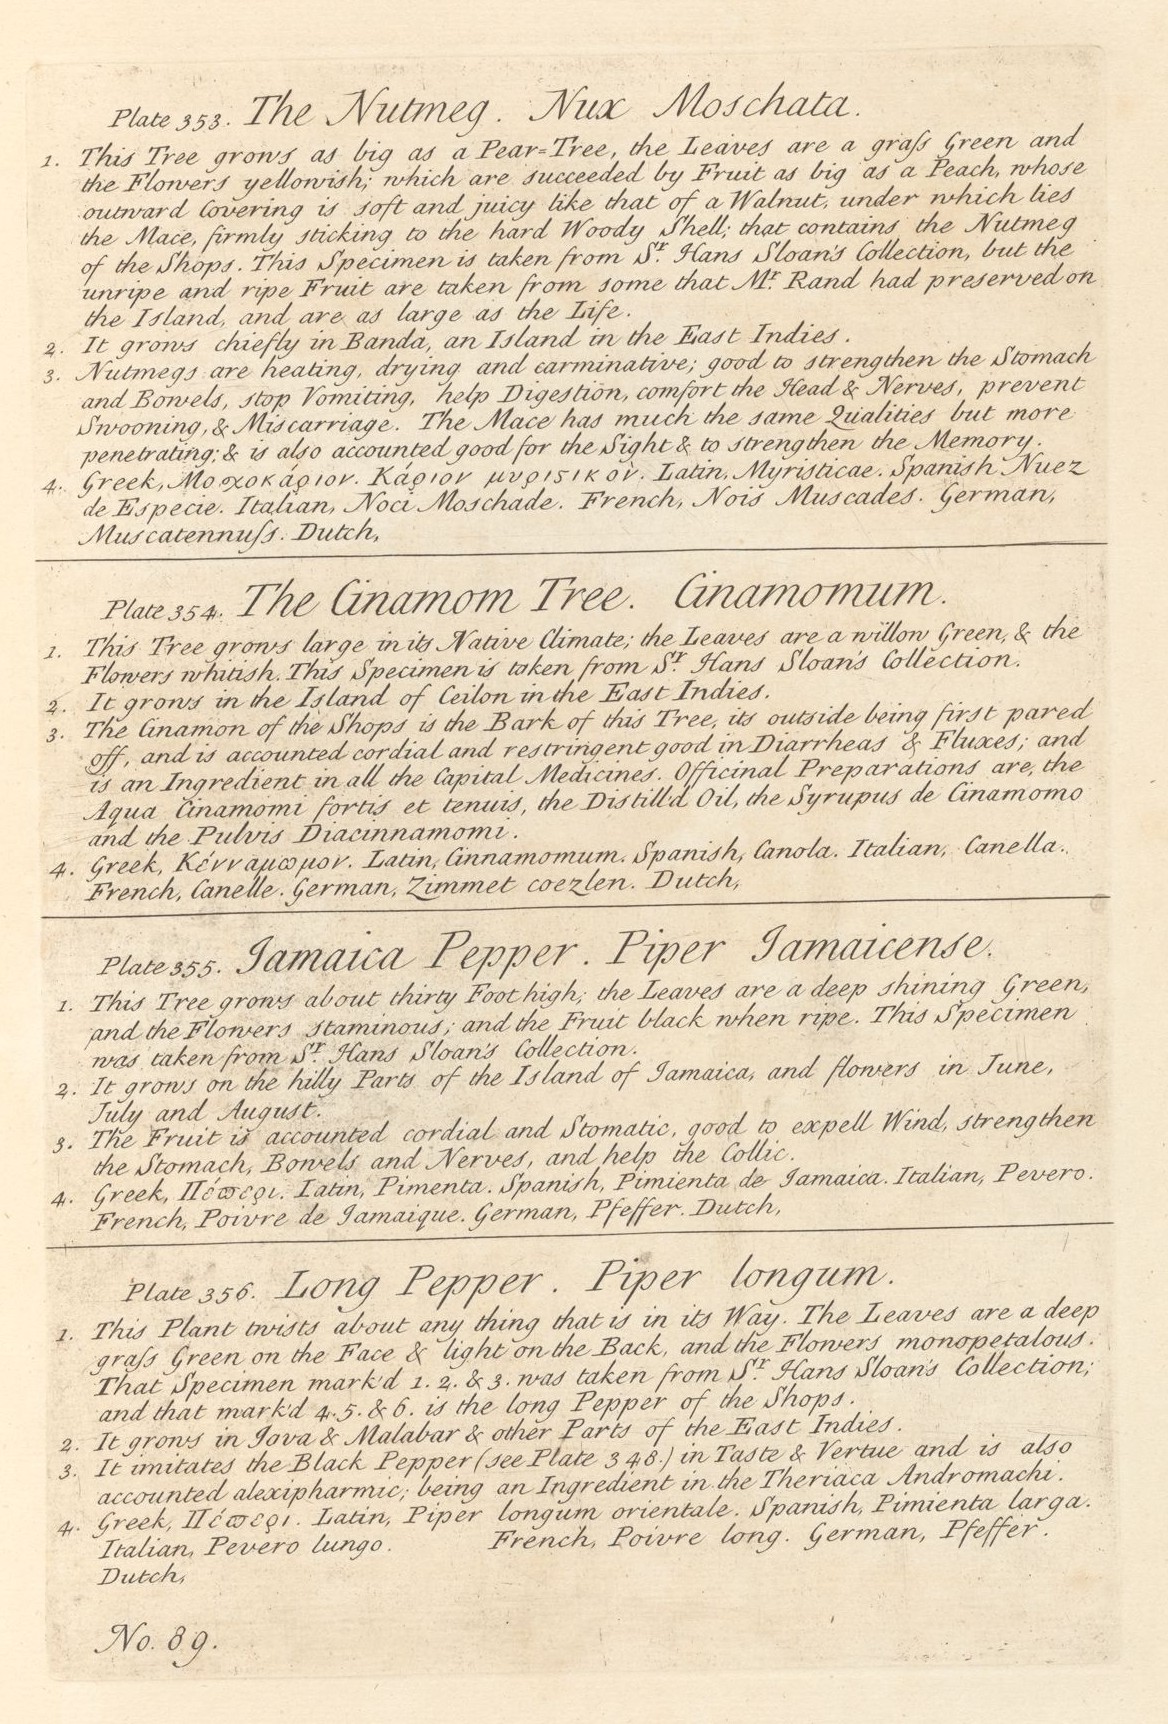 Plate 353. The Nutmeg. Nux Moschata.
1. This Tree grows as big as a Pear=Tree, the Leaves are a graſs Green and
the Flowers yellowish; which are succeeded by Fruit as big as a Peach, whose
outward Covering is soft and juicy like that of a Walnut, under which lies
the Mace, firmly sticking to the hard Woody Shell; that contains the Nutmeg
of the Shops. This Specimen is taken from Sr. Hans Sloan's Collection, but the
unripe and ripe Fruit are taken from some that Mr. Rand had preserved on
the Island, and are as large as the Life.
2. It grows chiefly in Banda, an Island in the East Indies.
3. Nutmegs are heating, drying and carminative; good to strengthen the Stomach
and Bowels, stop Vomiting, help Digestion, comfort the Head & Nerves, prevent
Swooning, & Miscarriage. The Mace has much the same Qualities but more
penetrating; & is also accounted good for the Sight & to strengthen the Memory.
4. Greek, Μοσχοκάριον. Κάριον μυριϛικὸν. Latin, Myristicae. Spanish Nuez
de Especie. Italian, Noci Moschade. French, Nois Muscades. German,
Muscatennuſs. Dutch,
Plate 354. The Cinamom Tree. Cinamomum.
1. This Tree grows large in its Native Climate; the Leaves are a willow Green, & the
Flowers whitish. This Specimen is taken from Sr. Hans Sloan's Collection.
2. It grows in the Island of Ceilon in the East Indies.
3. The Cinamon of the Shops is the Bark of this Tree, its outside being first pared
off, and is accounted cordial and restringent good in Diarrheas & Fluxes; and
is an Ingredient in all the Capital Medicines. Officinal Preparations are, the
Aqua Cinamomi fortis et tenuis, the Distill'd Oil, the Syrupus de Cinamomo
and the Pulvis Diacinnamomi.
4. Greek, Κέννάμωμον. Latin, Cinnamomum. Spanish, Canola. Italian, Canella.
French, Canelle. German, Zimmet coezlen. Dutch,
Plate 355. Jamaica Pepper. Piper Jamaicense.
1. This Tree grows about thirty Foot high; the Leaves are a deep shining Green,
and the Flowers staminous; and the Fruit black when ripe. This Specimen
was taken from Sr. Hans Sloan's Collection.
2. It grows on the hilly Parts of the Island of Jamaica, and flowers in June,
July and August.
3. The Fruit is accounted cordial and Stomatic, good to expell Wind, strengthen
the Stomach, Bowels and Nerves, and help the Collic.
4. Greek, Πέϖερι. Latin, Pimenta. Spanish, Pimienta de Jamaica. Italian, Pevero.
French, Poivre de Jamaique. German, Pfeffer. Dutch,
Plate 356. Long Pepper. Piper longum.
1. This Plant twists about any thing that is in its Way. The Leaves are a deep
graſs Green on the Face & light on the Back, and the Flowers monopetalous.
That Specimen mark'd 1. 2. & 3. was taken from Sr. Hans Sloan's Collection;
and that mark'd 4. 5. & 6. is the long Pepper of the Shops.
2. It grows in Java & Malabar & other Parts of the East Indies.
3. It imitates the Black Pepper (see Plate 348.) in Taste & Vertue and is also
accounted alexipharmic; being an Ingredient in the Theriaca Andromachi.
4. Greek, Πέϖερι. Latin, Piper longum orientale. Spanish, Pimienta larga.
Italian, Pevero lungo. French, Poivre long. German, Pfeffer.
Dutch,
No. 89.